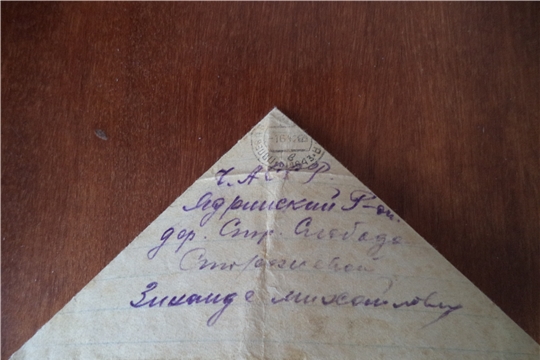 Ч.АССР.
Ядринский Р-он.
дер. Стр. Слобода
Сторожевой
Зинаиде Михайловну